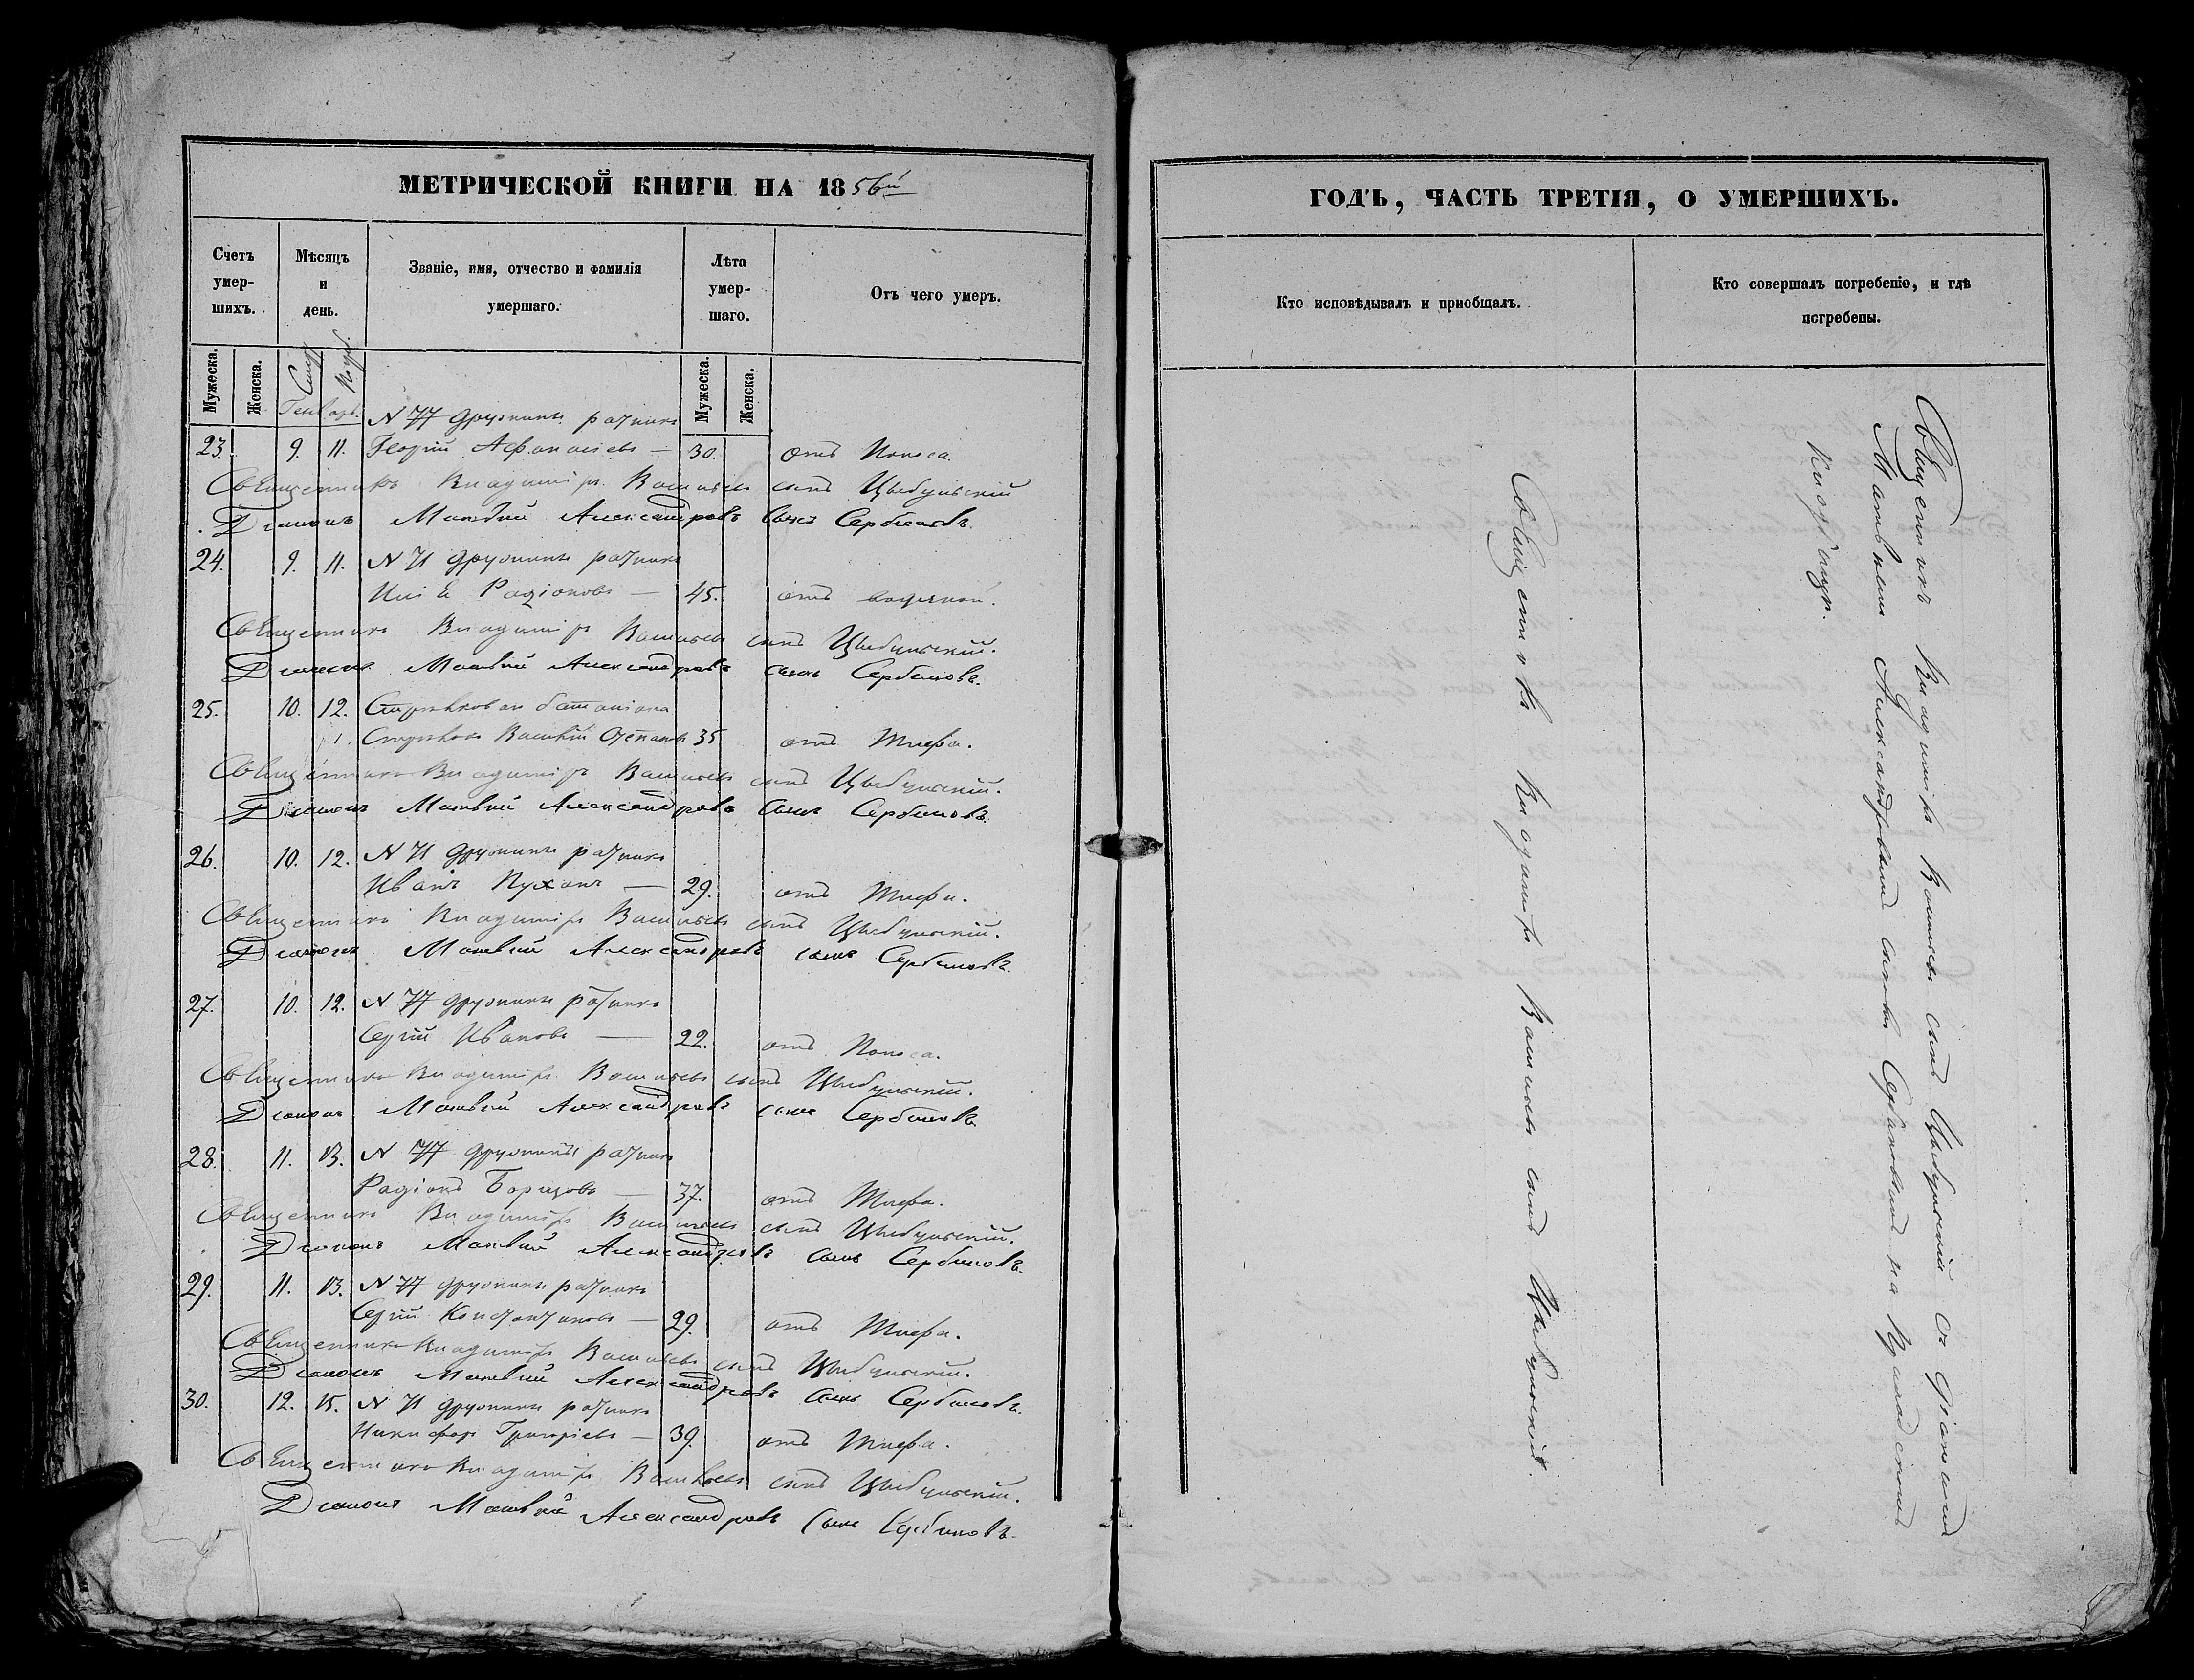 МЕТРИЧЕСКОЙ КНИГИ НА 1856й
Счетъ умер-шихъ.
Мѣсяцъ и день.
Званіе, имя, отчество и фамилія умершаго.
Лѣта умер-шаго.
Отъ чего умеръ.
Мужеска.
Женска.
Смерт.
Погреб.
Мужеска.
Женска.
Генварь.
N 77 дружины ратникъ
23. 9. 11. Георгій Афанасіевъ — 30. отъ Поноса.
Священникъ Владиміръ Васильевъ сынъ Цыбульскій
Діаконъ Матвій Александровъ Сынъ Сербиновъ.
24. 9. 11. N 71 дружины ратникъ
Родіоновъ — 45. отъ водяной.
Священникъ Владиміръ Васильевъ сынъ Цыбульскій.
Діаконъ Матвій Александровъ сынъ Сербиновъ.
25. 10. 12. Стрѣлковаго баталіона
Стрѣлокъ Василій 35 отъ Тифа.
Священникъ Владиміръ Васильевъ сынъ Цыбульскій.
Діаконъ Матвій Александровъ Сынъ Сербиновъ.
26. 10. 12. N 71 дружины ратникъ
Иванъ Пуханъ — 29. отъ Тифа.
Священникъ Владиміръ Васильевъ сынъ Цыбульскій.
Діаконъ Матвій Александровъ сынъ Сербиновъ.
27. 10. 12. N 77 дружины ратникъ
Сергій Ивановъ — 22. отъ Поноса.
Священникъ Владиміръ Васильевъ сынъ Цыбульскій.
Діаконъ Матвій Александровъ сынъ Сербиновъ.
28. 11. 13. N 77 дружины ратникъ
Радіонъ — 37. отъ Тифа.
Священникъ Владиміръ Васильевъ сынъ Цыбульскій.
Діаконъ Матвій Александровъ Сынъ Сербиновъ.
29. 11. 13. N 77 дружины ратникъ
Сергій Константиновъ — 29. отъ Тифа.
Священникъ Владиміръ Васильевъ сынъ Цыбульскій.
Діаконъ Матвій Александровъ Сынъ Сербиновъ.
30. 12. 15. N 71 дружины ратникъ
Никифоръ Григоріевъ — 39. отъ Тифа.
Священникъ Владиміръ Васильевъ сынъ Цыбульскій.
Діаконъ Матвій Александровъ Сынъ Сербиновъ.
ГОДЪ, ЧАСТЬ ТРЕТІЯ, О УМЕРШИХЪ.
Кто исповѣдывалъ и пріобщалъ.
Кто совершалъ погребеніе, и гдѣ погребены.
Священникъ Владиміръ Васильевъ сынъ Цыбульскій.
Священникъ Владиміръ Васильевъ сынъ Цыбульскій съ Діакономъ
Матвѣемъ Александровымъ сыномъ Сербиновымъ на Градскомъ
Кладбищѣ.